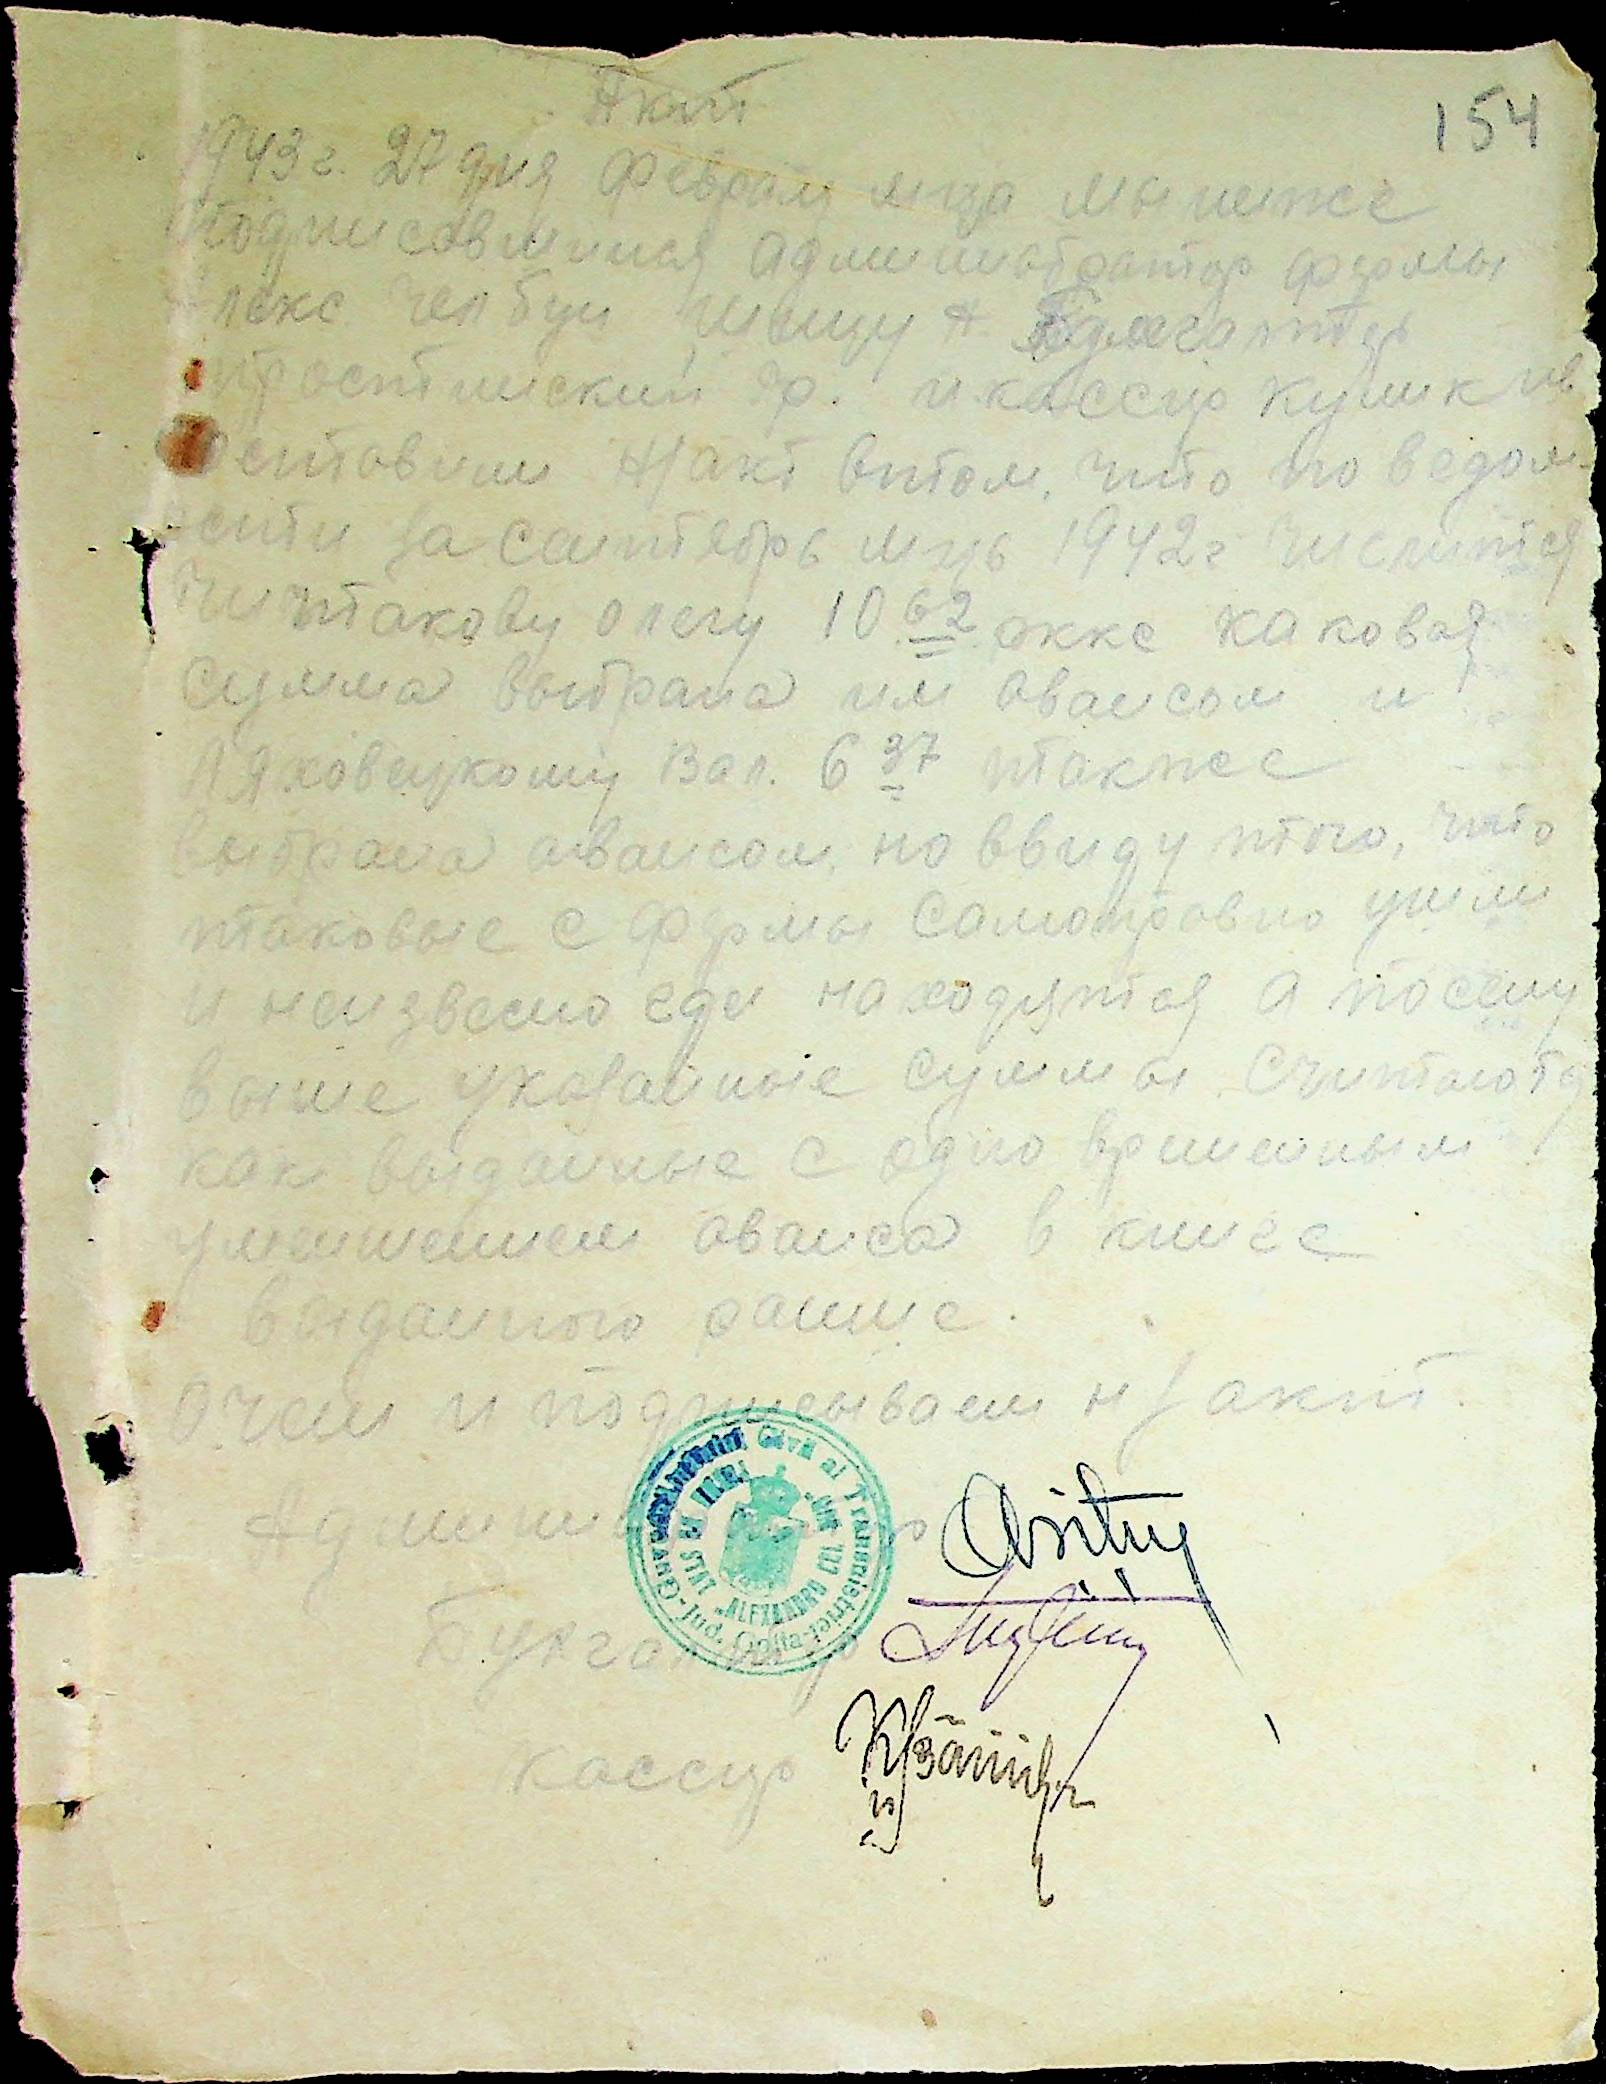 154
Акт
1943 г. 27 дня февраля м-ца мы ниже
подписавшиися администратор фермы
Алекс Челбул А. Бухгалтер
гр. и кассир Кулик
составили н/акт втом, что по ведом-
ости за сентябрь м-ць 1942 г числится
Чиптакову Олегу 10 62 окке каковая
сумма выбрана им авансом и
Ляховецкому Вал. 6 37 также
выбрана авансом, но ввиду того, что
таковые с фермы самоправно ушли
и неизвесно где находятся а посему
выше указанные суммы считаются
как выданные с одно временным
уменшением аванса в книге
выданного ранше.
О чем и подписываем н/акт.
Админи
Бухгалтер
кассир
Guvernământul Civil al Transnistriei
"ALEXANDRU